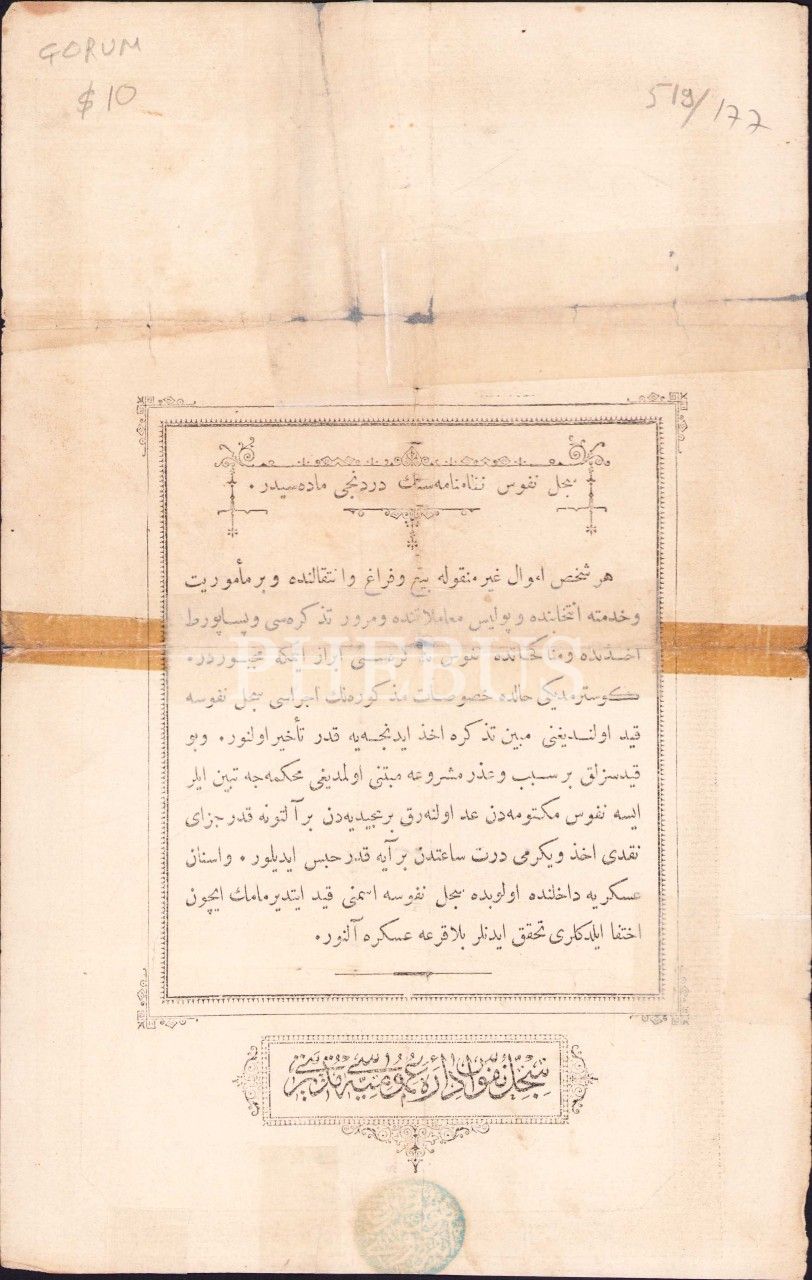 ÇORUM
$10
519/177
سجل نفوس نظامنامه‌سنك دردنجی ماده‌سیدر.
هر شخص اموال غیر منقوله بیع وفراغ وانتقالنده وبر مأموریت
وخدمته انتخابنده وپولیس معاملاتنده ومرور تذکره‌سی وپساپورط
اخذنده ومناکحاتنده نفوس تذکره‌سنی ابراز ایتمکه مجبوردر.
کوسترمدیکی حالده خصوصات مذکوره‌نك اجراسی سجل نفوسه
قید اولندیغنی مبین تذکره اخذ ایدنجه‌یه قدر تأخیر اولنور. وبو
قیدسزلق بر سبب وعذر مشروعه مبتنی اولمدیغی محکمه‌جه تبین ایلر
ایسه نفوس مکتومه‌دن عد اوله‌رق بر مجیدیه‌دن بر آلتونه قدر جزای
نقدی اخذ ویکرمی درت ساعتدن بر آیه قدر حبس ایدیلور. واسنان
عسکریه داخلنده اولوبده سجل نفوسه اسمنی قید ایتدیرمامك ایچون
اختفا ایلدکلری تحقق ایدنلر بلاقرعه عسکره آلنور.
سجل نفوس اداره عمومیه‌سی
PHEBUS